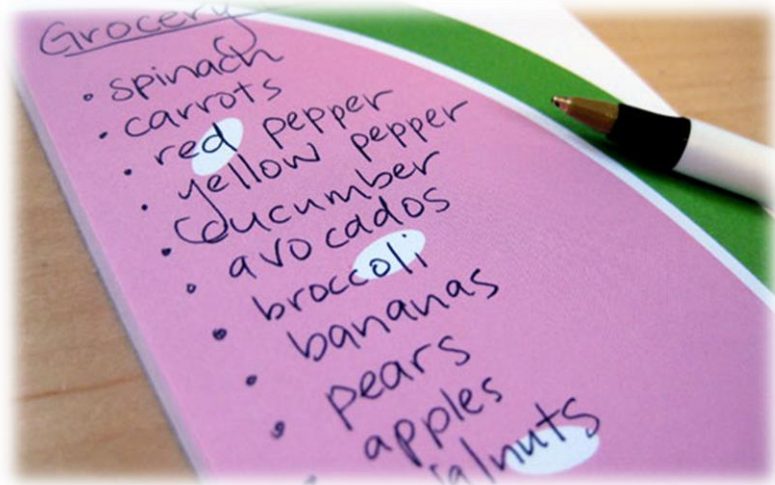 Grocery
• spinach
• carrots
• red pepper
• yellow pepper
• cucumber
• avocados
• broccoli
• bananas
• pears
• apples
walnuts